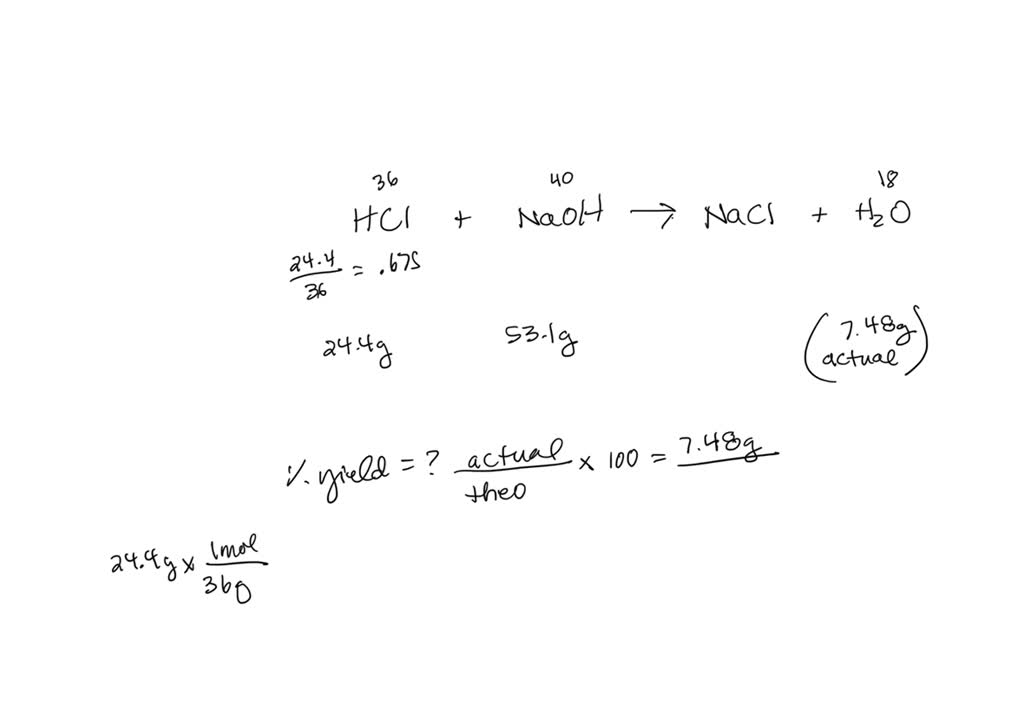 36 40 18
HCl + NaOH → NaCl + H₂O
24.4/36 = .675
24.4g 53.1g (7.48g actual)
% yield = ? actual/theo × 100 = 7.48g
24.4g × 1mol/36g